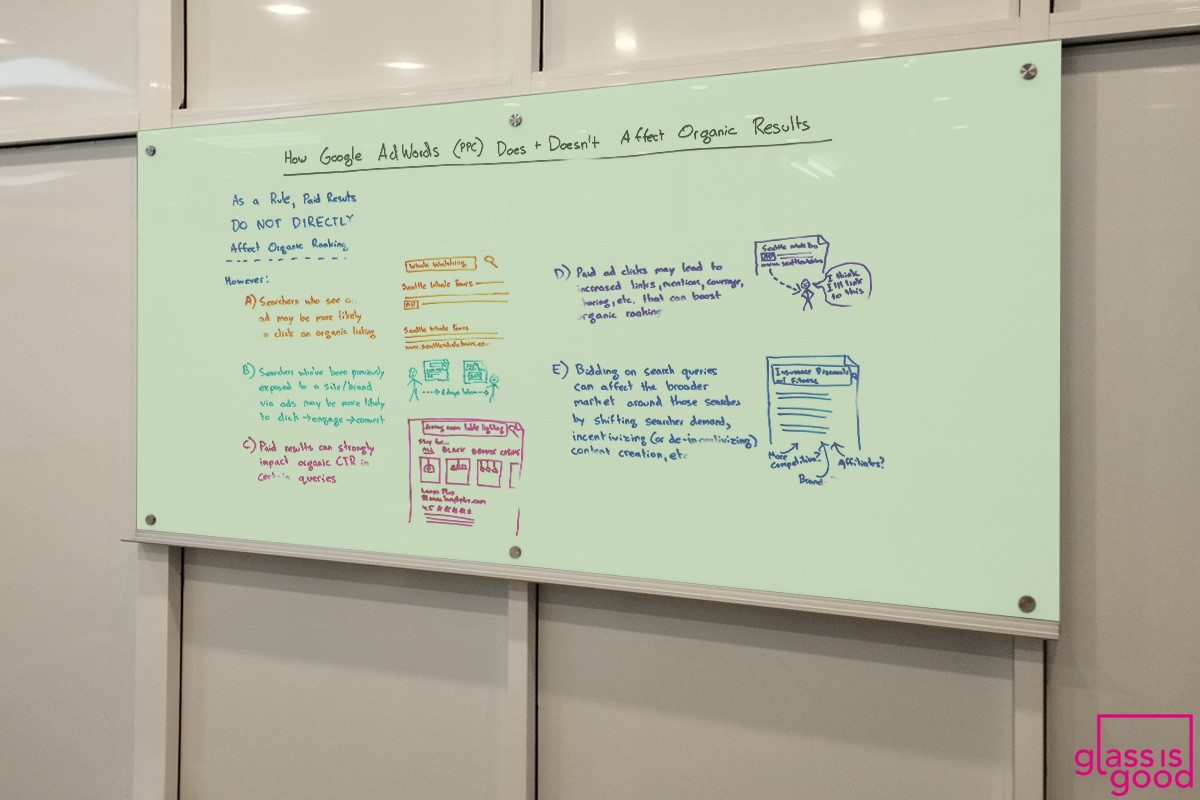 How Google AdWords (PPC) Does + Doesn't Affect Organic Results
As a Rule, Paid Resuts
DO NOT DIRECTLY
Affect Organic Ranking
However:
A) Searchers who see a
ad may be more likely
o click on organic listing
B) Searchers who've been previously
exposed to a site/brand
via ads may be more likely
to click → engage → convert
C) Paid results can strongly
impact organic CTR in
certain queries
Whale Watching
Seattle Whale Tours
AD
Seattle Whale Tours
www.seattlewhaletours.co
dining room table lighting
Shop for...
All BLACK BRONZE
Lamps Plus
www.lampsplus.com
4.5
D) Paid ad clicks may lead to
increased links, mentions, coverage,
haring, etc. that can boost
organic ranking
Seattle Whale
AD
I think
I'll link
to this
E) Bidding on search queries
can affect the broader
market around those searches
by shifting searcher demand,
incentivizing (or de-incentivizing)
content creation, etc
Insurance
Fitness
More
competition?
Brand
Affiliates?
glass is
good